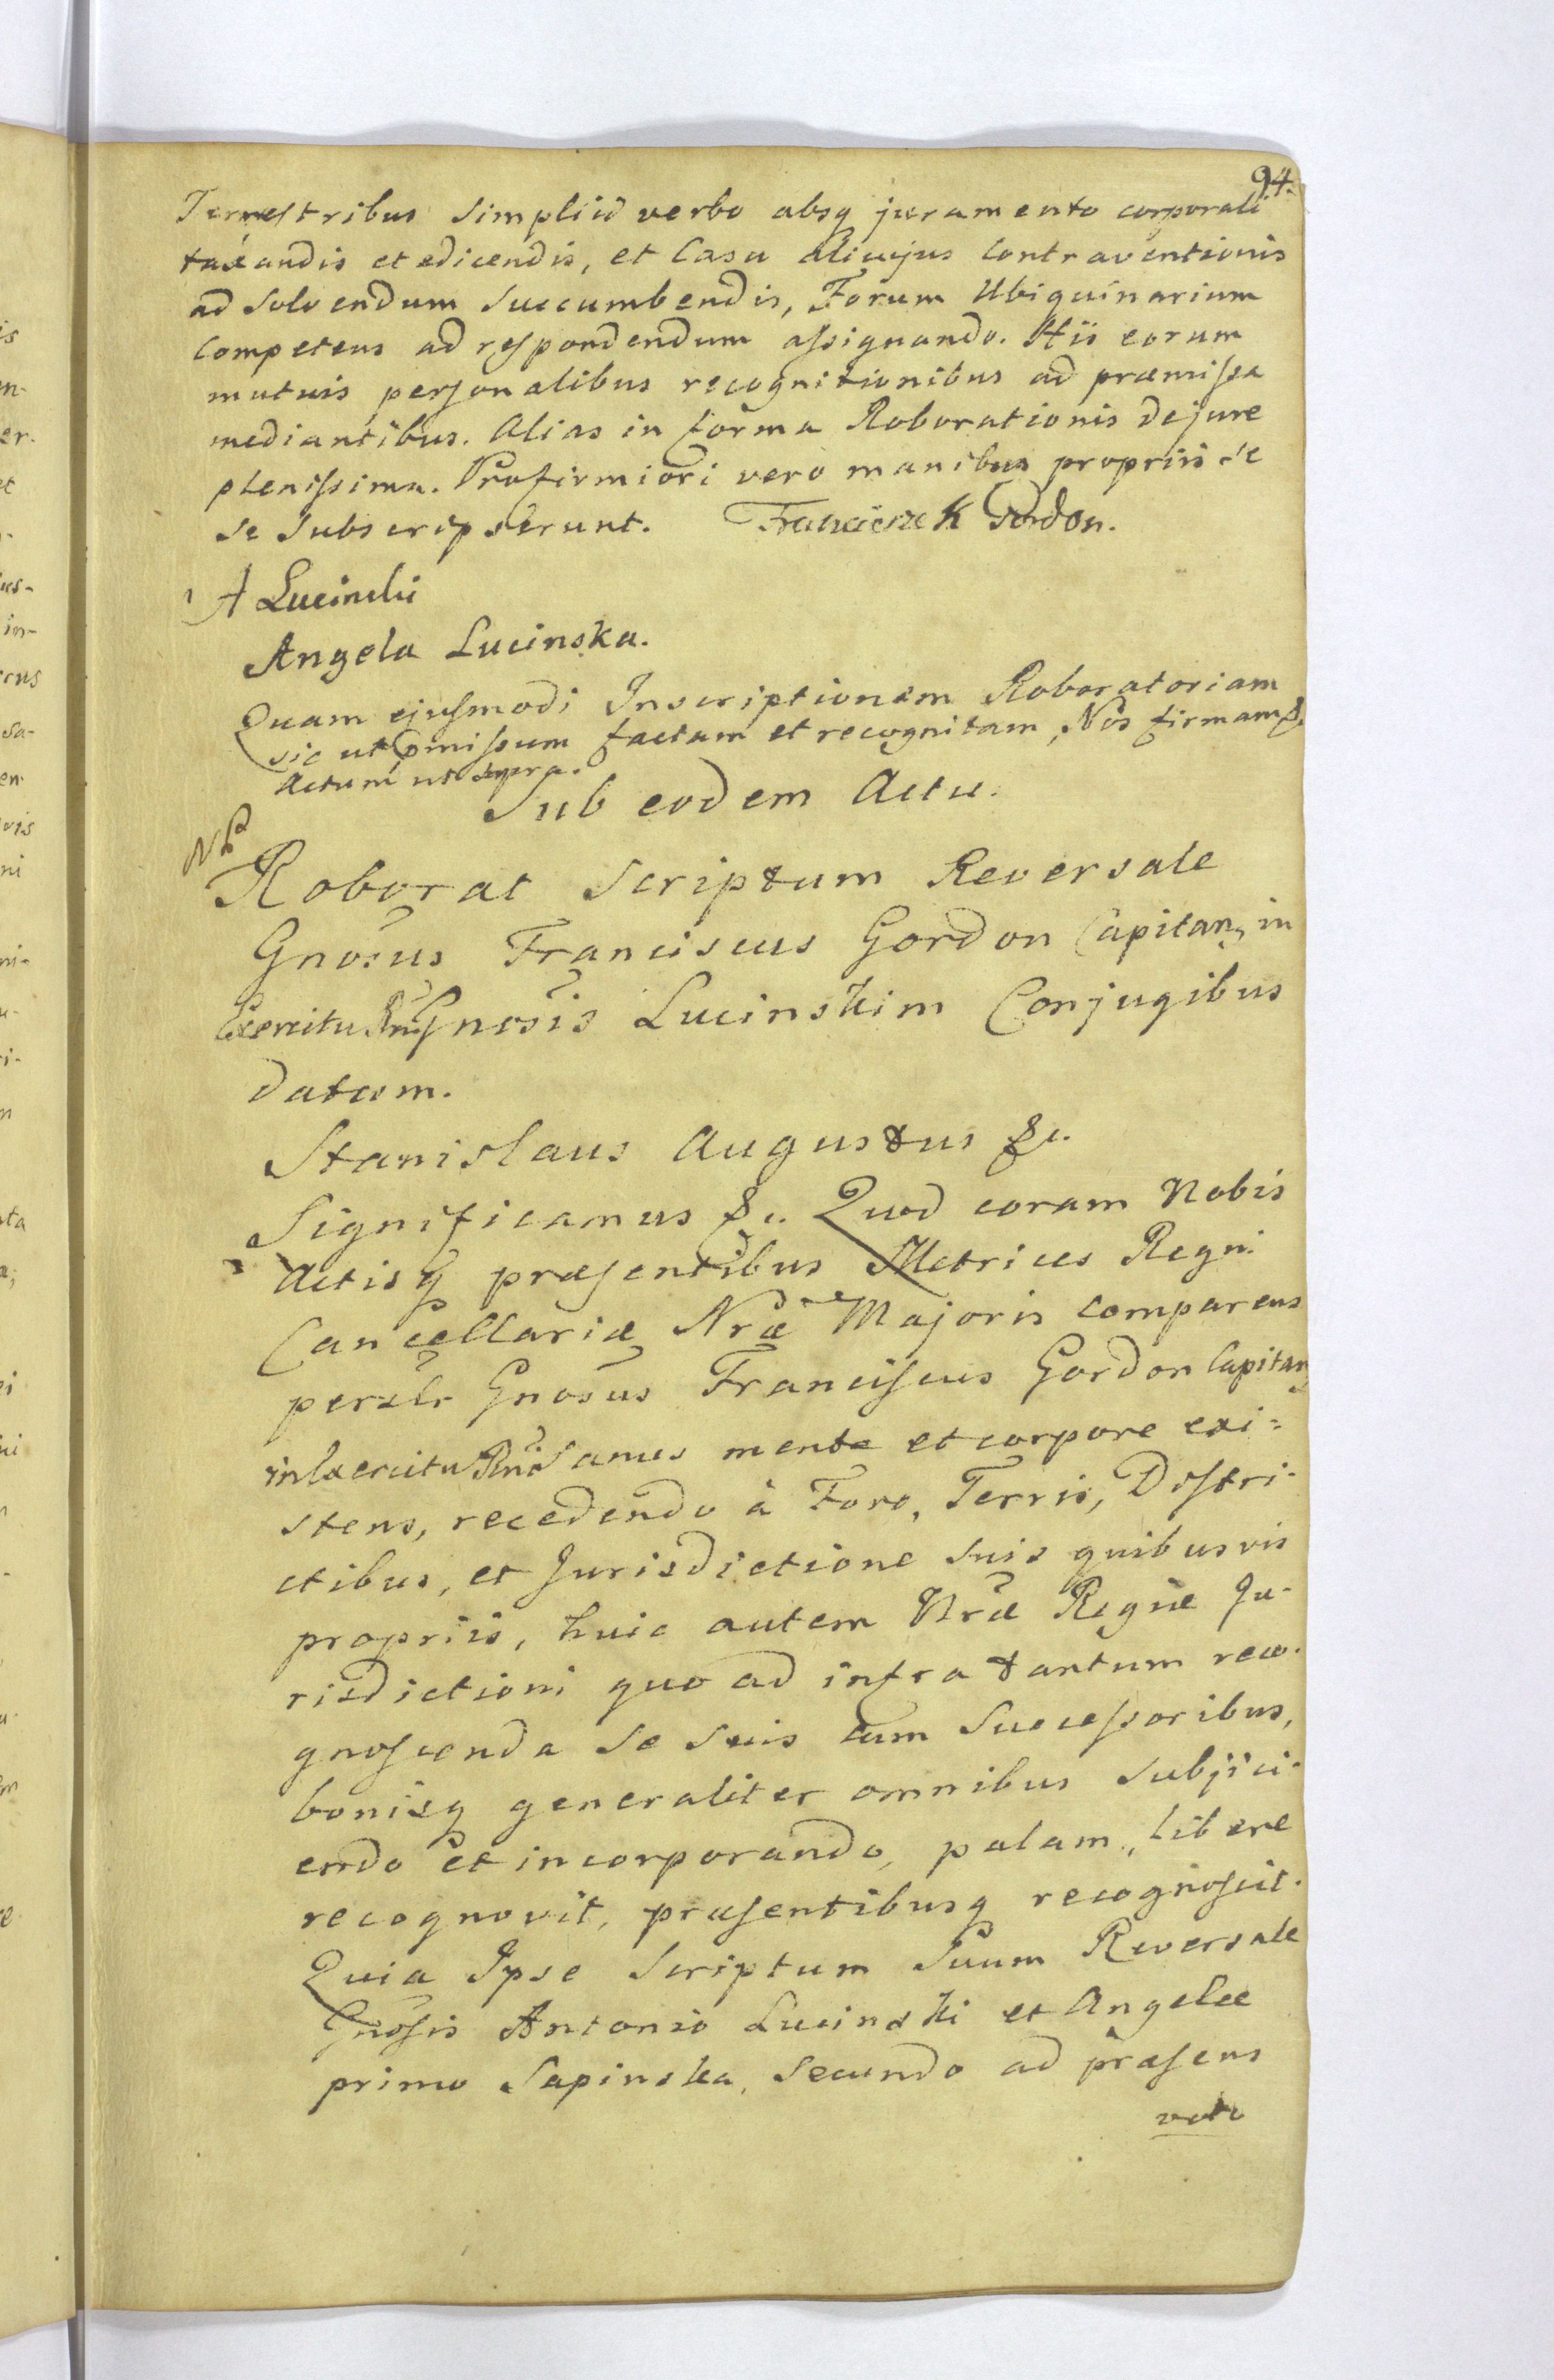 94.
Terrestribus simplici verbo absq juramento corporali
taxandis et edicendis, et Casu alicujus Contraventionis
ad solvendum succumbendis, Forum Ubiquinarium
Competens ad respondendum assignando. Hiis eorum
mutuis personalibus recognitionibus ad præmissa
mediantibus. Alias in forma Roborationis de jure
plenissima. Pro firmiori vero manibus propriis se
se subscripserunt. Franciszek Gordon.
A Lucinski
Angela Lucinska.
Quam ejusmodi Inscriptionem Roboratoriam
sic ut pmissum factam et recognitam, Nos firmam &.
Actum ut supra.
Sub eodem Actu.
Roborat Scriptum Reversale
Gnosus Franciscus Gordon Capitan, in
Exercitu Rni Gnosis Lucinskim Conjugibus
datum.
Stanislaus Augustus &c.
Significamus &c. Quod coram Nobis
Actisq præsentibus Metrices Regni
Cancellariæ Nræ Majoris comparens
perslr Gnosus Franciscus Gordon Capitan,
in Exercitu Rni Sanus mente et corpore exi=
stens, recedendo à Foro, Terris, Distri-
ctibus, et Jurisdictione suis quibusvis
propriis, huic autem Nræ Regiæ Ju-
risdictioni quo ad infra tantum reco-
gnoscenda se suis cum Successoribus,
bonisq generaliter omnibus subjici-
endo et incorporando, palam, libere
recognovit, præsentibusq recognoscit.
Quia Ipse Scriptum Suum Reversale
Gnosis Antonio Lucinski et Angelæ
primo Sapinska, Secundo ad præsens
voto